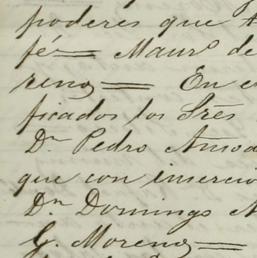 poderes que
fé == Maur.º de
reno == En
ficados los Sres
Dn Pedro Amod
que con inserció
Dn Domingo A
G. Moreno ==